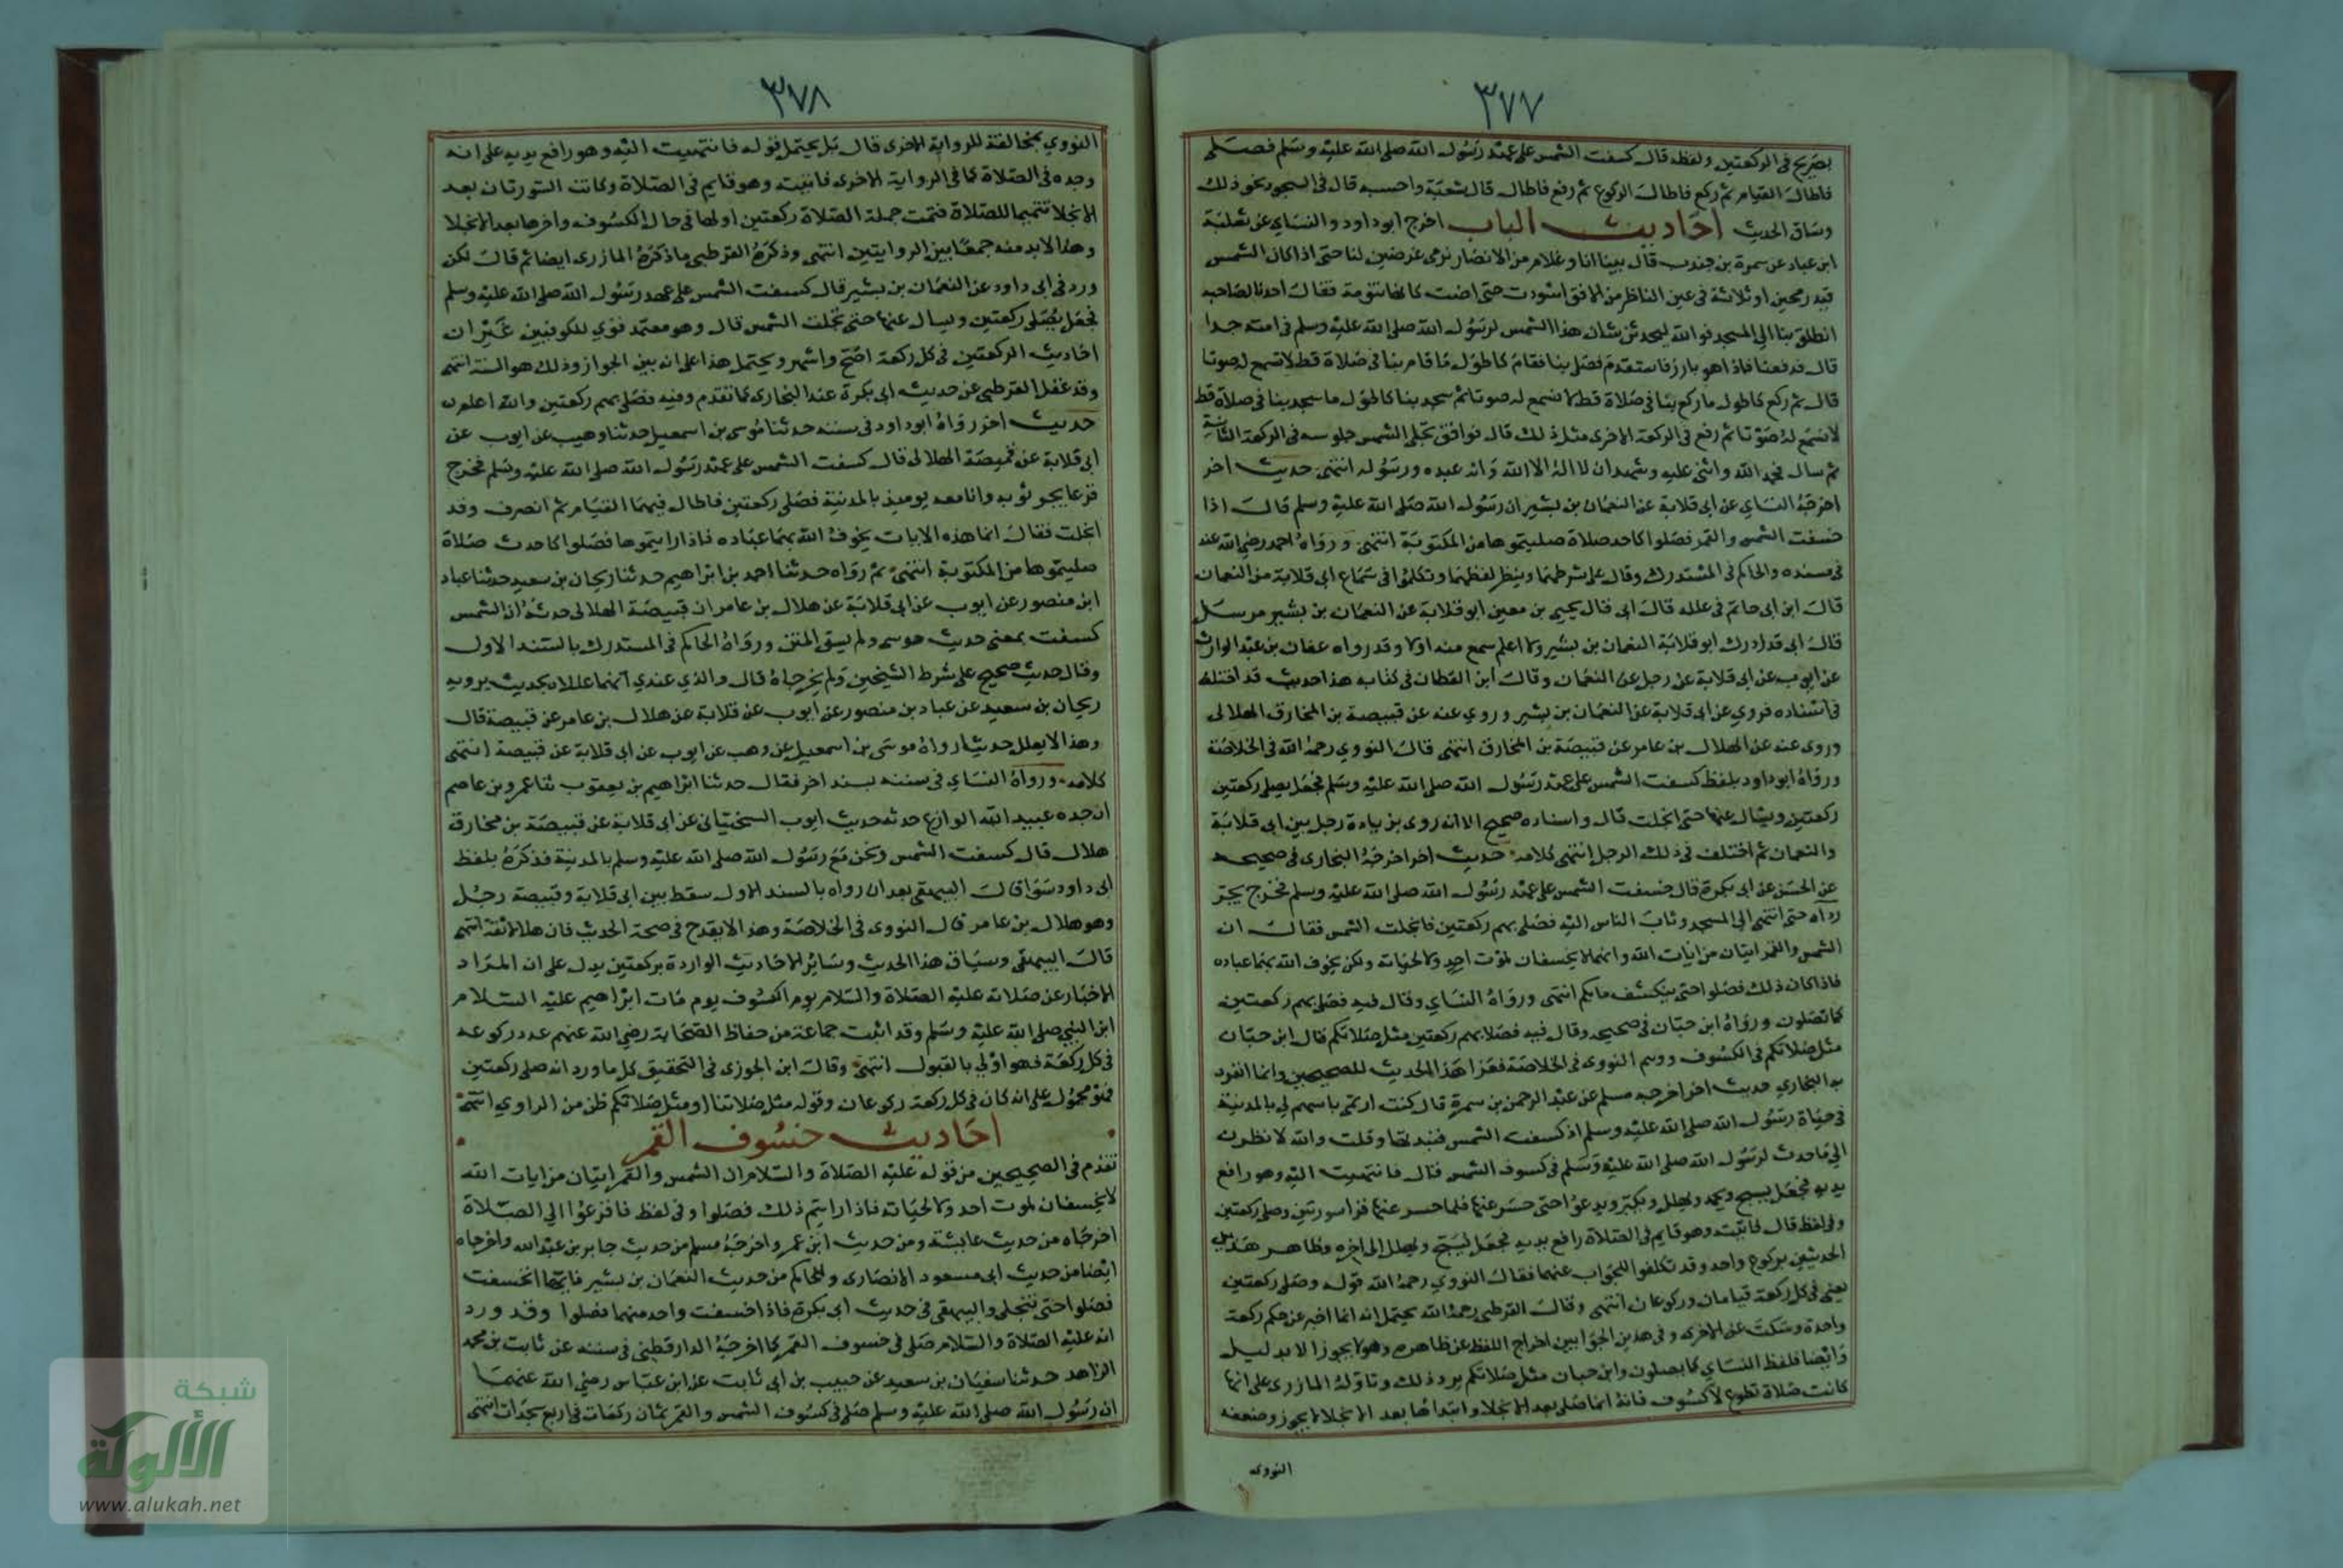 ٣٧٧
بصريح في الركعتين ولفظه قال كسفت الشمس على عهد رسول الله صلى الله عليه وسلم فصلى
فاطال القيام ثم ركع فاطال الركوع ثم رفع فاطال قال شعبة واحسبه قال في السجود نحو ذلك
وساق الحديث احاديث الباب اخرج ابو داود والنساي عن ثعلبة
ابن عباد عن سمرة بن جندب قال بينا انا وغلام من الانصار نرمي غرضين لنا حتى اذا كان الشمس
قيد رمحين او ثلاثة في عين الناظر من الافق اسودت حتى اضت كانها تنومة فقال احدنا لصاحبه
انطلق بنا الي المسجد فوالله ليحدثن شان هذا الشمس لرسول الله صلى الله عليه وسلم في امته حدا
قال فدفعنا فاذا هو بارز فاستقدم فصلى بنا فقام كاطول ما قام بنا في صلاة قط لا تسمع له صوتا
قال ثم ركع كاطول ما ركع بنا في صلاة قط لا نسمع له صوتا ثم سجد بنا كاطول ما سجد بنا في صلاة قط
لا نسمع له صوتا ثم رفع في الركعة الاخرى مثل ذلك قال فوافق تجلي الشمس جلوسه في الركعة الثانية
ثم سال فحمد الله واثنى عليه وشهد ان لا اله الا الله وانه عبده ورسوله انتهى حديث اخر
اخرجه النساي عن ابي قلابة عن النعمان بن بشير ان رسول الله صلى الله عليه وسلم قال اذا
خسفت الشمس والقمر فصلوا كاحد صلاة صليتموها من المكتوبة انتهى ورواه احمد رضي الله عنه
في مسنده والحاكم في المستدرك وقال على شرطهما وينظر لفظهما وتكلموا في سماع ابي قلابة من النعمان
قال ابن ابي حاتم في علله قال ابي قال يحيى بن معين ابو قلابة عن النعمان بن بشير مرسل
قال ابي قد ادرك ابو قلابة النعمان بن بشير ولا اعلم سمع منه اولا وقد رواه عفان بن عبد الوارث
عن ايوب عن ابي قلابة عن رجل عن النعمان وقال ابن القطان في كتابه هذا حديث قد اختلف
في اسناده فروي عن ابي قلابة عن النعمان بن بشير وروي عنه عن قبيصة بن المخارق الهلالي
وروى عنه عن الهلال بن عامر عن قبيصة بن المخارق انتهى قال النووي رحمه الله في الخلاصة
ورواه ابو داود بلفظ كسفت الشمس على عهد رسول الله صلى الله عليه وسلم فجعل يصلي ركعتين
ركعتين ويسال عنها حتى انجلت قال واسناده صحيح الا انه روى بزيادة رجل بين ابي قلابة
والنعمان ثم اختلف في ذلك الرجل انتهى كلامه حديث اخر اخرجه البخارى في صحيحه
عن الحسن عن ابي بكرة قال خسفت الشمس على عهد رسول الله صلى الله عليه وسلم فخرج يجر
رداه حتى انتهى الي المسجد وثاب الناس اليه فصلى بهم ركعتين فانجلت الشمس فقال ان
الشمس والقمر ايتان من ايات الله وانهما لا يخسفان لموت احد ولا لحياته ولكن يخوف الله بهما عباده
فاذا كان ذلك فصلوا حتى ينكشف ما بكم انتهى ورواه النساي وقال فيه فصلى بهم ركعتين
كما تصلون ورواه ابن حبان في صحيحه وقال فيه فصلا بهم ركعتين مثل صلاتكم قال ابن حبان
مثل صلاتكم في الكسوف ووهم النووى في الخلاصة فعزا هذا الحديث للصحيحين وانما انفرد
به البخاري حديث اخر اخرجه مسلم عن عبد الرحمن بن سمرة قال كنت ارتمى باسهم لي بالمدينة
في حياة رسول الله صلى الله عليه وسلم اذ كسفت الشمس فنبذتها وقلت والله لانظرن
الي ما حدث لرسول الله صلى الله عليه وسلم في كسوف الشمس قال فانتهيت اليه وهو رافع
يديه فجعل يسبح ويحمد ويهلل ويكبر ويدعوا حتى حسر عنها فلما حسر عنها قرا سورتين وصلى ركعتين
وفي لفظ قال فاتيت وهو قايم في الصلاة رافع يديه فجعل يسبح ويهلل الى اخره وظاهر هذين
الحديثين بركوع واحد وقد تكلفوا الجواب عنهما فقال النووي رحمه الله قوله وصلى ركعتين
يعني في كل ركعة قيامان وركوعان انتهى وقال القرطبي رحمه الله يحتمل انه انما اخبر عن حكم ركعة
واحدة وسكت عن الاخرى وفي هذين الجوابين اخراج اللفظ عن ظاهره وهو لا يجوز الا بدليل
وايضا فلفظ النساي كما يصلون وابن حبان مثل صلاتكم يرد ذلك وتاوله المازرى على انها
كانت صلاة تطوع لا كسوف فانه انما صلى بعد الانجلا وابتداها بعد الانجلا لا يجوز وضعفه
النووى
٣٧٨
النووي بمخالفته للرواية الاخرى قال بل يحتمل قوله فانتهيت اليه وهو رافع يديه على انه
وجده في الصلاة كما في الرواية الاخرى فاتيت وهو قايم في الصلاة وكانت السورتان بعد
الانجلا تتميما للصلاة فتمت جملة الصلاة ركعتين اولها في حال الكسوف واخرها بعد الانجلا
وهذا لا بد منه جمعا بين الروايتين انتهى وذكره القرطبي ما ذكره المازرى ايضا ثم قال لكن
ورد في ابي داود عن النعمان بن بشير قال كسفت الشمس على عهد رسول الله صلى الله عليه وسلم
فجعل يصلى ركعتين ويسال عنها حتى تجلت الشمس قال وهو معتمد قوي للكوفيين غير ان
احاديث الركعتين في كل ركعة اصح واشهر ويحتمل هذا على انه بين الجواز وذلك هو السنة انتهى
وقد غفل القرطبي عن حديث ابي بكرة عند البخارى كما تقدم وفيه فصلى بهم ركعتين والله اعلم
حديث اخر رواه ابو داود في سننه حدثنا موسى بن اسمعيل حدثنا وهيب عن ايوب عن
ابي قلابة عن قبيصة الهلالى قال كسفت الشمس على عهد رسول الله صلى الله عليه وسلم فخرج
فزعا يجر ثوبه وانا معه يوميذ بالمدينة فصلى ركعتين فاطال فيهما القيام ثم انصرف وقد
انجلت فقال انما هذه الايات يخوف الله بهما عباده فاذا رايتموها فصلوا كاحدث صلاة
صليتموها من المكتوبة انتهى ثم رواه حدثنا احمد بن ابراهيم حدثنا ريحان بن سعيد حدثنا عباد
ابن منصور عن ايوب عن ابي قلابة عن هلال بن عامر ان قبيصة الهلالى حدثه ان الشمس
كسفت بمعنى حديث موسى ولم يسق المتن ورواه الحاكم في المستدرك بالسند الاول
وقال حديث صحيح على شرط الشيخين ولم يخرجاه قال والذي عندي انهما عللاه بحديث يرويه
ريحان بن سعيد عن عباد بن منصور عن ايوب عن قلابة عن هلال بن عامر عن قبيصة قال
وهذا لا يعلل حديثا رواه موسى بن اسمعيل عن وهب عن ايوب عن ابي قلابة عن قبيصة انتهى
كلامه ورواه النساي في سننه بسند اخر فقال حدثنا ابراهيم بن يعقوب ثنا عمرو بن عاصم
ان جده عبيد الله الوازع حدثه حديث ايوب السختيانى عن ابي قلابة عن قبيصة بن مخارق
هلال قال كسفت الشمس ونحن مع رسول الله صلى الله عليه وسلم بالمدينة فذكره بلفظ
ابي داود سوا قال البيهقي بعد ان رواه بالسند الاول سقط بين ابي قلابة وقبيصة رجل
وهو هلال بن عامر قال النووى في الخلاصة وهذا لا يقدح في صحة الحديث فان هلالا ثقة انتهى
قال البيهقي وسياق هذا الحديث وساير الاحاديث الواردة بركعتين يدل على ان المراد
الاخبار عن صلاته عليه الصلاة والسلام يوم الكسوف يوم مات ابراهيم عليه السلام
ابن النبي صلى الله عليه وسلم وقد اثبت جماعة من حفاظ الصحابة رضي الله عنهم عدد ركوعه
في كل ركعة فهو اولي بالقبول انتهى وقال ابن الجوزى في التحقيق كل ما ورد انه صلى ركعتين
فهو محمول على انه كان في كل ركعة ركوعان وقوله مثل صلاتنا او مثل صلاتكم ظن من الراوي انتهى
احاديث خسوف القمر
تقدم في الصحيحين من قوله عليه الصلاة والسلام ان الشمس والقمر ايتان من ايات الله
لا يخسفان لموت احد ولا لحياته فاذا رايتم ذلك فصلوا وفي لفظ فافزعوا الي الصلاة
اخرجاه من حديث عايشة ومن حديث ابن عمر واخرجه مسلم من حديث جابر بن عبد الله واخرجاه
ايضا من حديث ابي مسعود الانصارى وللحاكم من حديث النعمان بن بشير فايتهما انخسفت
فصلوا حتى تنجلى والبيهقي في حديث ابي بكرة فاذا خسفت واحد منهما فصلوا وقد ورد
انه عليه الصلاة والسلام صلى في خسوف القمر كما اخرجه الدارقطني في سننه عن ثابت بن محمد
الزاهد حدثنا سفيان بن سعيد عن حبيب بن ابي ثابت عن ابن عباس رضي الله عنهما
ان رسول الله صلى الله عليه وسلم صلى في كسوف الشمس والقمر ثمان ركعات في اربع سجدات انتهى
شبكة
الألوكة
www.alukah.net